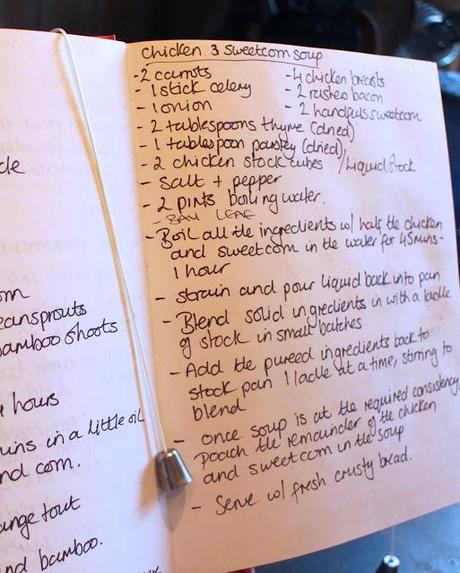 eansprouts
amboo shoots
hours
ins in a little oil
nd corn.
ange tout
nd bamboo.
chicken & sweetcorn soup
- 2 carrots - 4 chicken breasts
- 1 stick celery - 2 rashers bacon
- 1 onion - 2 handfuls sweetcorn
- 2 tablespoons thyme (dried)
- 1 tablespoon parsley (dried)
- 2 chicken stock cubes / Liquid stock
- salt + pepper
- 2 pints boiling water.
- BAY LEAF
- Boil all the ingredients w/ half the chicken
and sweetcorn in the water for 45mins -
1 hour
- strain and pour liquid back into pan
- Blend solid ingredients in with a ladle
of stock in small batches
- Add the pureed ingredients back to
stock pan 1 ladle at a time, stirring to
blend
- once soup is at the required consistency
poach the remainder of the chicken
and sweetcorn in the soup
- Serve w/ fresh crusty bread.